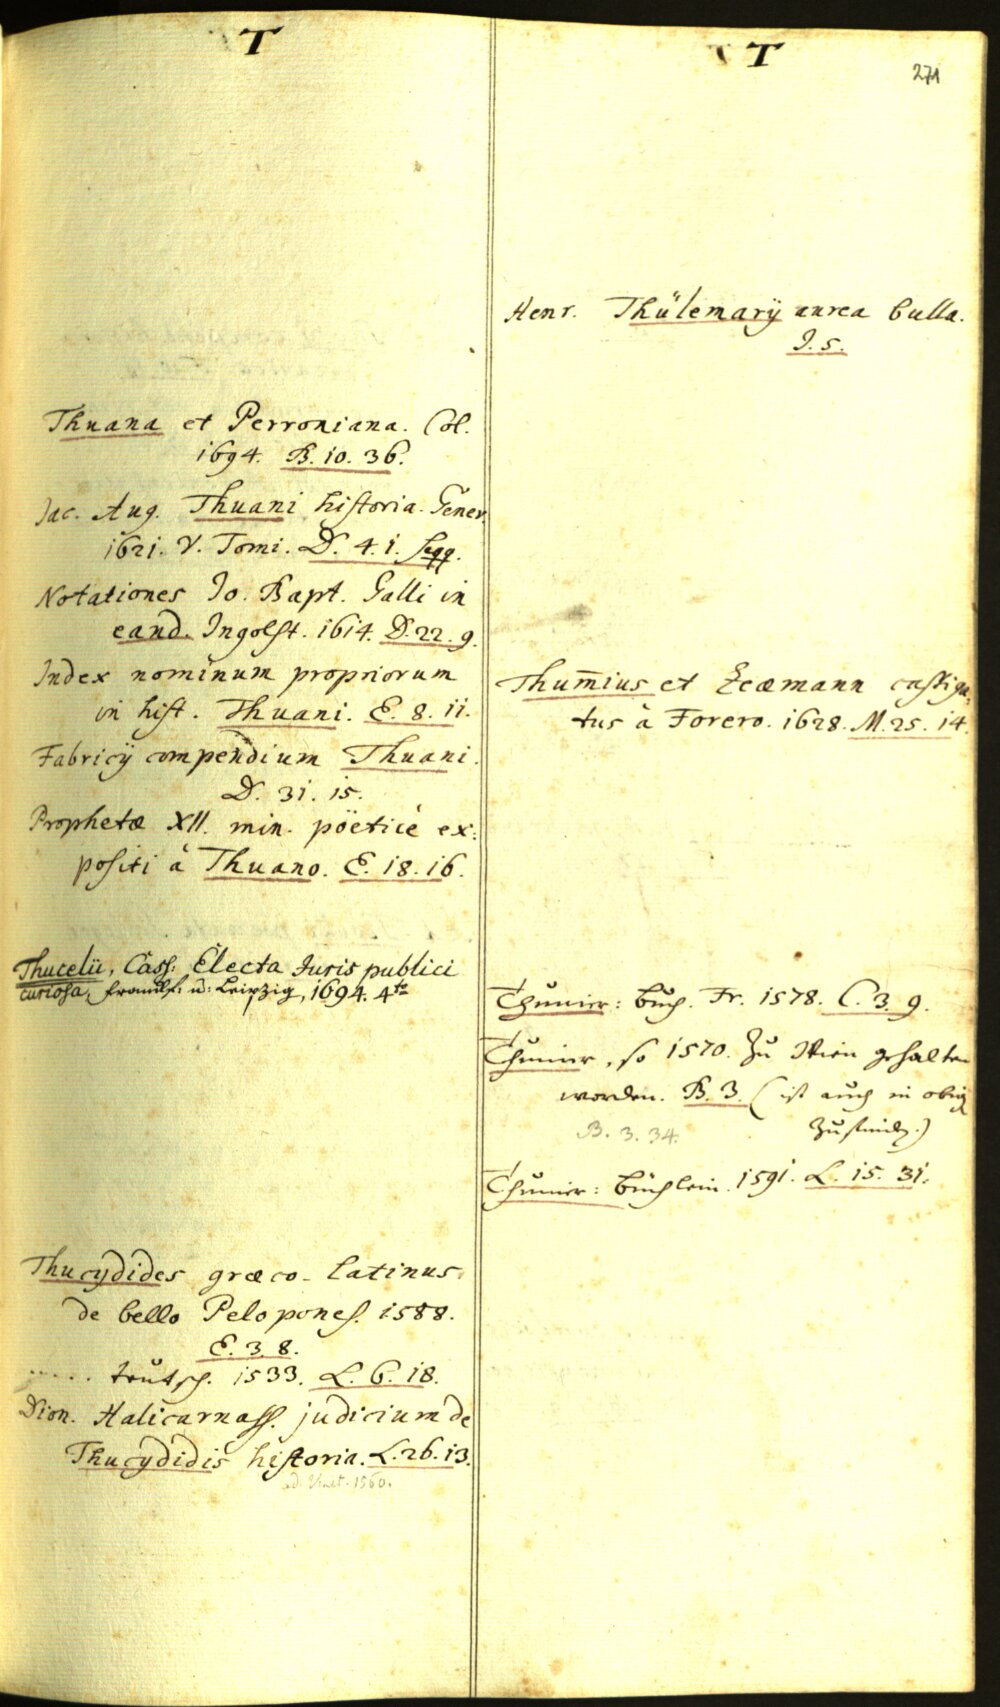 T
Thuana et Perroniana. Col.
1694. B. 10. 36.
Jac. Aug. Thuani historia. Genev.
1621. V. Tomi. D. 4. 1. seqq.
Notationes Jo. Bapt. Galli in
eand. Ingolst. 1614. D. 22. 9.
Index nominum propriorum
in hist. Thuani. E. 8. 11.
Fabricij compendium Thuani.
D. 31. 15.
Prophetæ XII. min. pöeticè ex:
positi à Thuano. E. 18. 16.
Thucelii, Cass: Electa Juris publici
curiosa, Franckf. u: Leipzig, 1694. 4to
Thucydides græco-latinus
de bello Pelopones. 1588.
E. 3. 8.
..... teutsch. 1533. L. 6. 18.
Dion. Halicarnass. judicium de
Thucydidis historia. L. 26. 13.
1560.
T
271
Henr. Thülemarij aurea bulla.
J. 5.
Thum̄ius et Zeæmann castiga,
tus à Forero. 1628. M. 25. 14.
Thurnier: Buch. Fr. 1578. C. 3. 9.
Thurnier, so 1570. Zu Wien gehalten
worden. B. 3. (ist auch in obig
zu finden.)
B. 3. 34.
Thurnier: Büchlein. 1591. L. 15. 31.